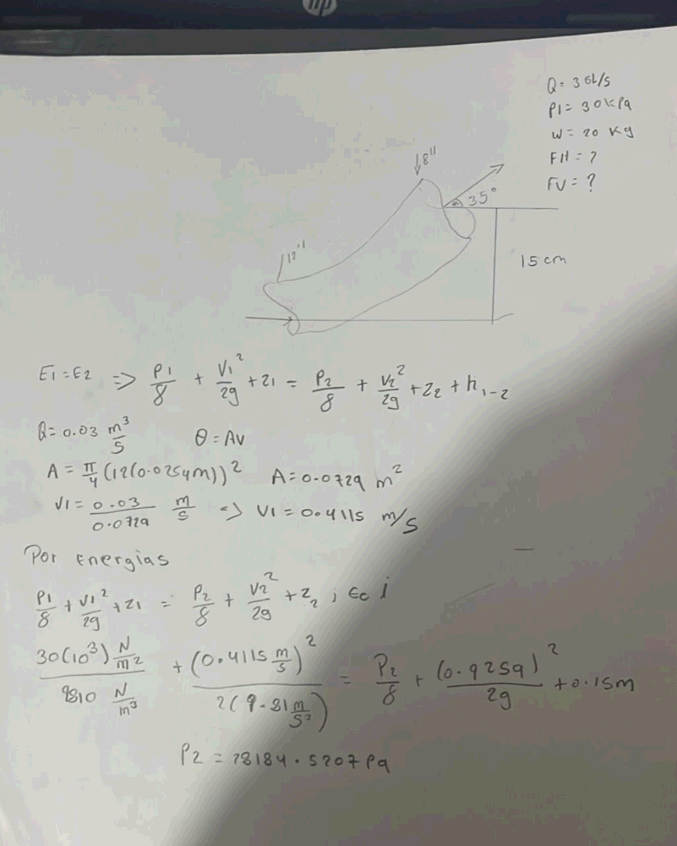 hp
Q= 30L/S
P1= 30kPa
W= 20 Kg
FH= ?
FV= ?
↓8"
35°
12"
15cm
E1=E2 => P1/8 + V1²/2g + z1 = P2/8 + V2²/2g + z2 + h1-2
Q= 0.03 m³/S θ = AV
A= π/4 (12(0.0254m))² A= 0.0729 m²
V1= 0.03/0.0729 m/s => V1= 0.4115 m/s
Por Energias
P1/8 + V1²/2g + z1 = P2/8 + V2²/2g + z2 , Ec i
30(10³) N/m² / 9810 N/m³ + (0.4115 m/s)² / 2(9.81 m/s²) = P2/8 + (0.9259)²/2g + 0.15m
P2 = 28184.5207 Pa